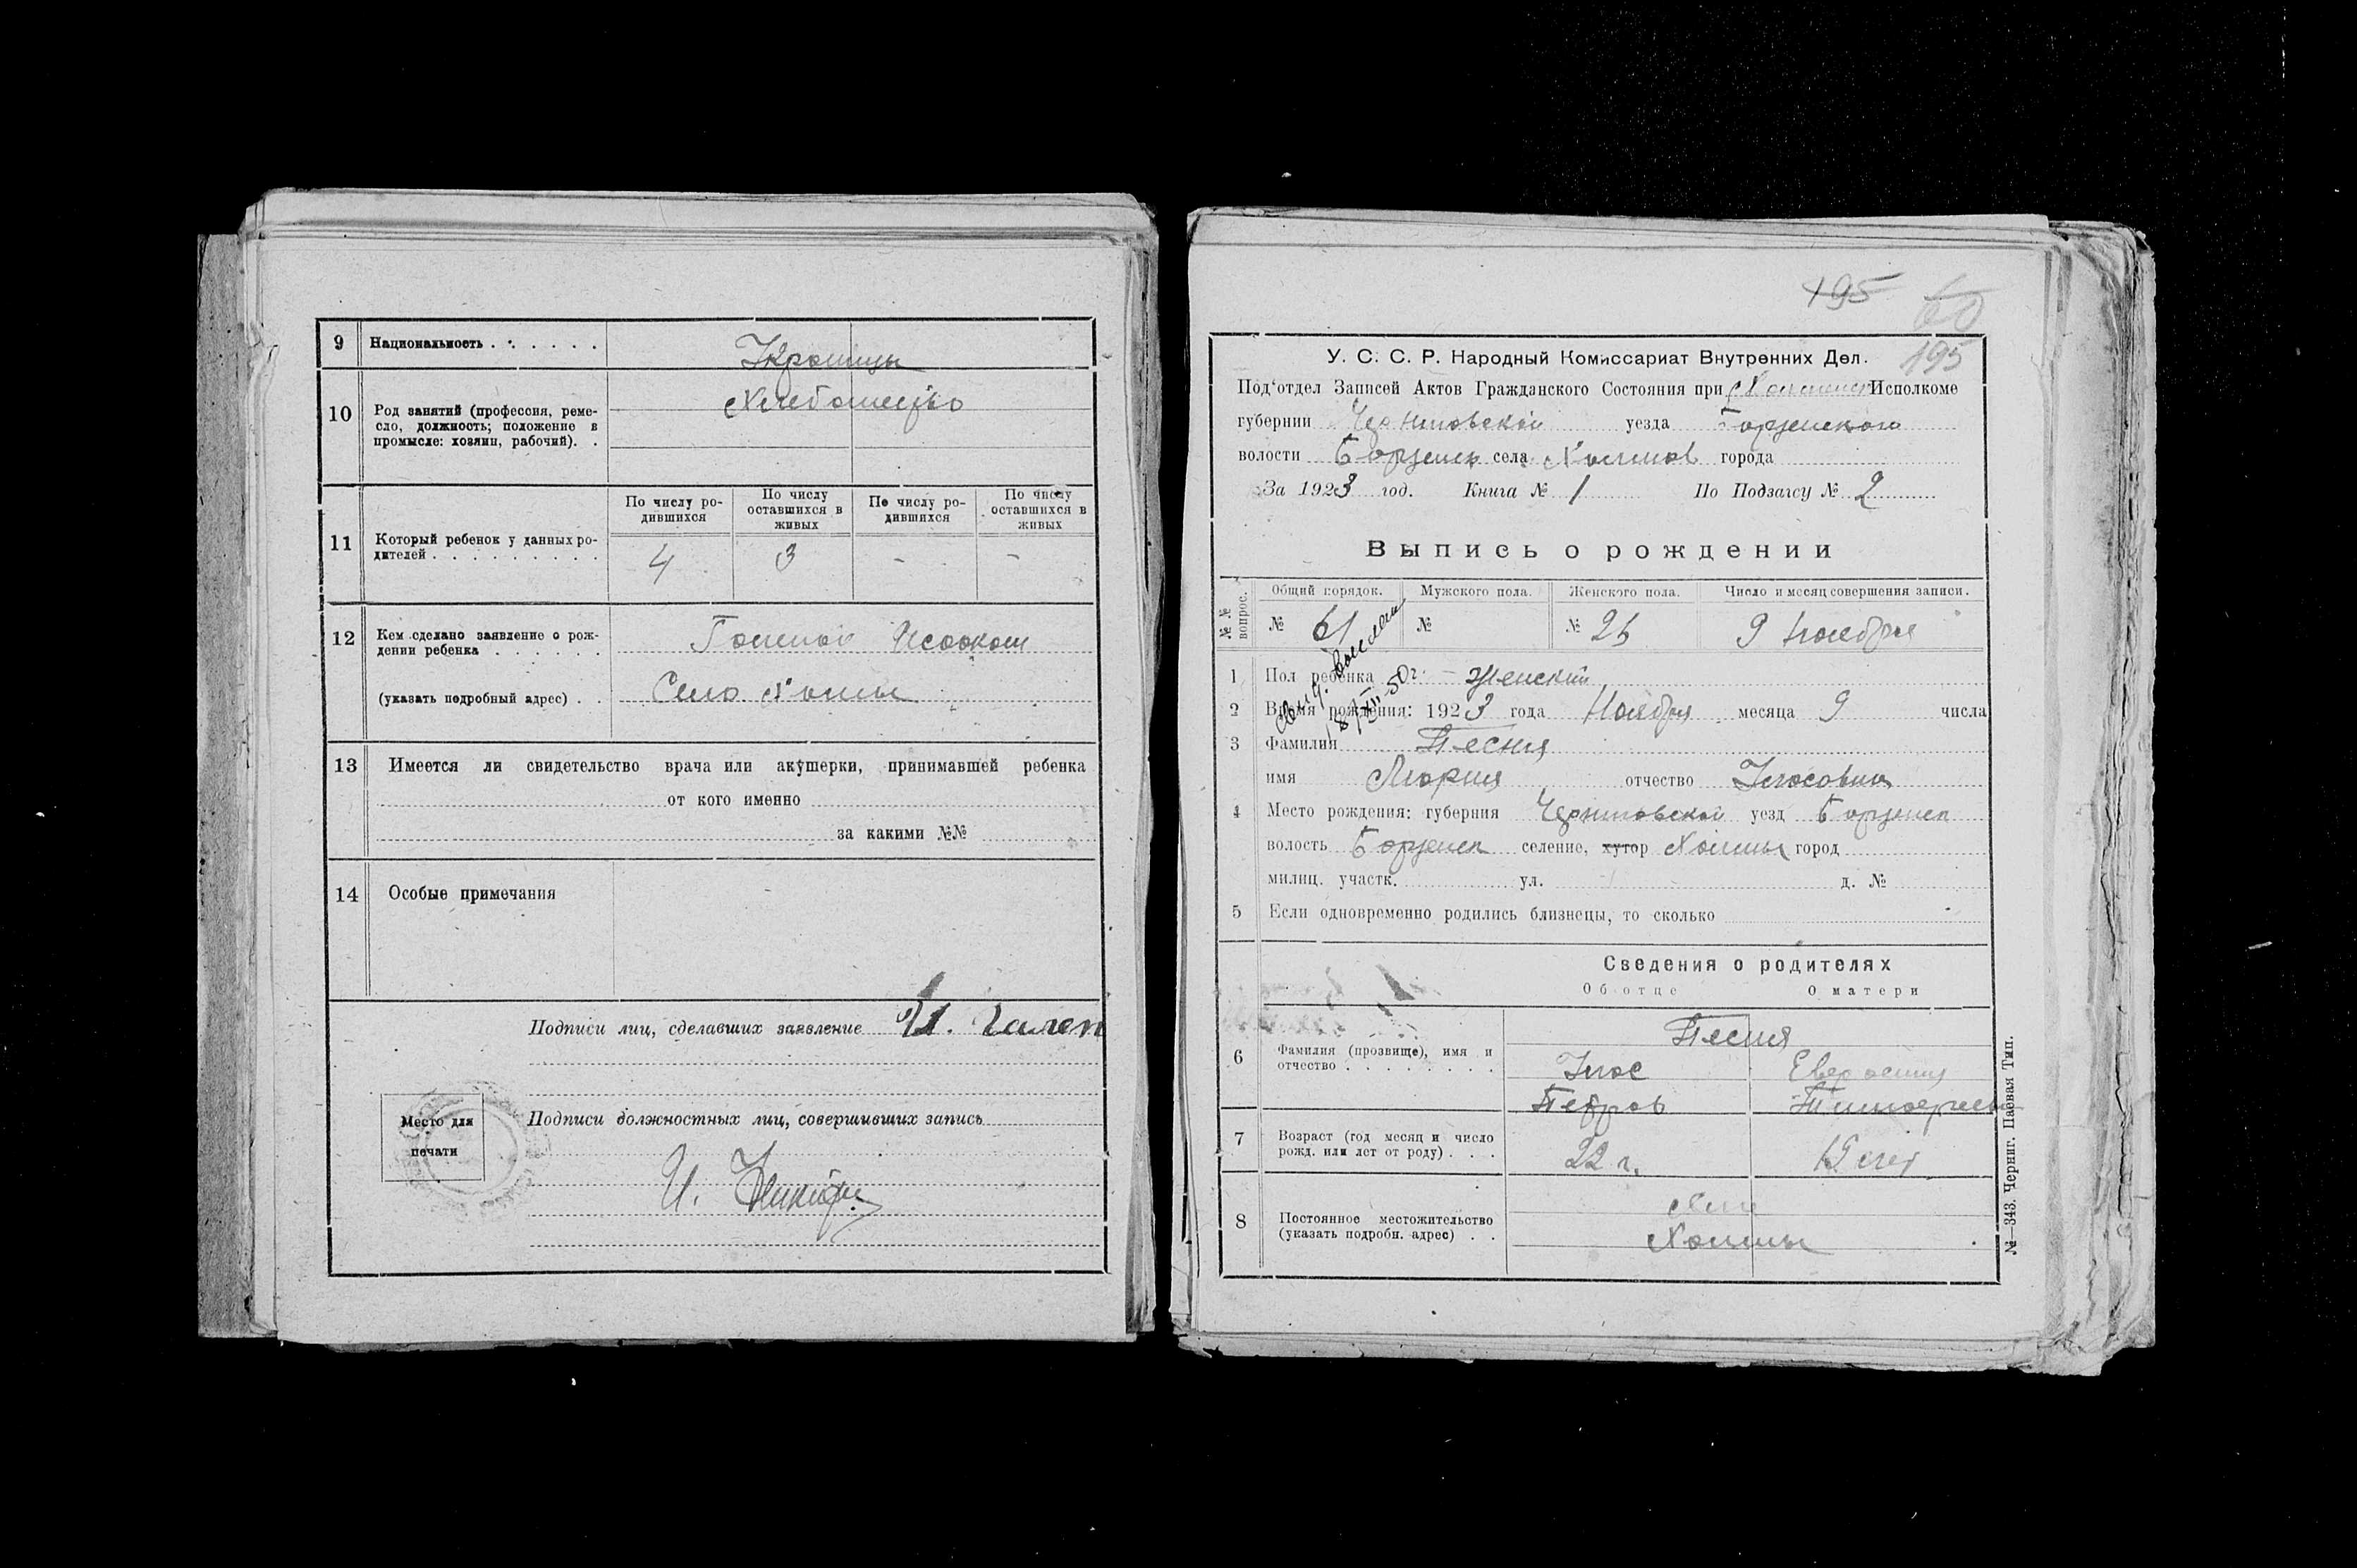 9 Национальность . . . . . . Украинцы
10 Род занятий (профессия, реме-
сло, должность; положение в
промысле: хозяин, рабочий). .
Хлебопашество
11 Который ребенок у данных ро-
дителей . . . . . . . . .
По числу ро-
дившихся
По числу
оставшихся в
живых
По числу ро-
дившихся
По числу
оставшихся в
живых
4 3 - -
12 Кем сделано заявление о рож-
дении ребенка . . . . . .
(указать подробный адрес) . .
Исааком
Село
13 Имеется ли свидетельство врача или акушерки, принимавшей ребенка
от кого именно
за какими №№
14 Особые примечания
Подписи лиц, сделавших заявление И. Галеп
Подписи должностных лиц, совершивших запись
Место для
печати
И.
195
60
195
У. С. С. Р. Народный Комиссариат Внутренних Дел.
Под‘отдел Записей Актов Гражданского Состояния при Исполкоме
губернии Черниговской уезда Борзенского
волости Борзенск села города
За 1923 год. Книга № 1 По Подзагсу № 2
Выпись о рождении
№ № вопрос.
Общий порядок. Мужского пола. Женского пола. Число и месяц совершения записи.
№ 61 № № 26 9 Ноября
1 Пол ребенка Женский
2 Время рождения: 1923 года Ноября месяца 9 числа
3 Фамилия Песня
имя Мария отчество Власовна
4 Место рождения: губерния Черниговской уезд Борзенск
волость Борзенск селение, хутор город
милиц. участк. ул. д. №
5 Если одновременно родились близнецы, то сколько
Сведения о родителях
Об отце О матери
6 Фамилия (прозвище), имя и
отчество . . . . . . . .
Песня
Влас
Петров
7 Возраст (год месяц и число
рожд. или лет от роду) . . .
22 г. 19 лет
8 Постоянное местожительство
(указать подробн. адрес) . .
№—343. Черниг. Паевая Тип.